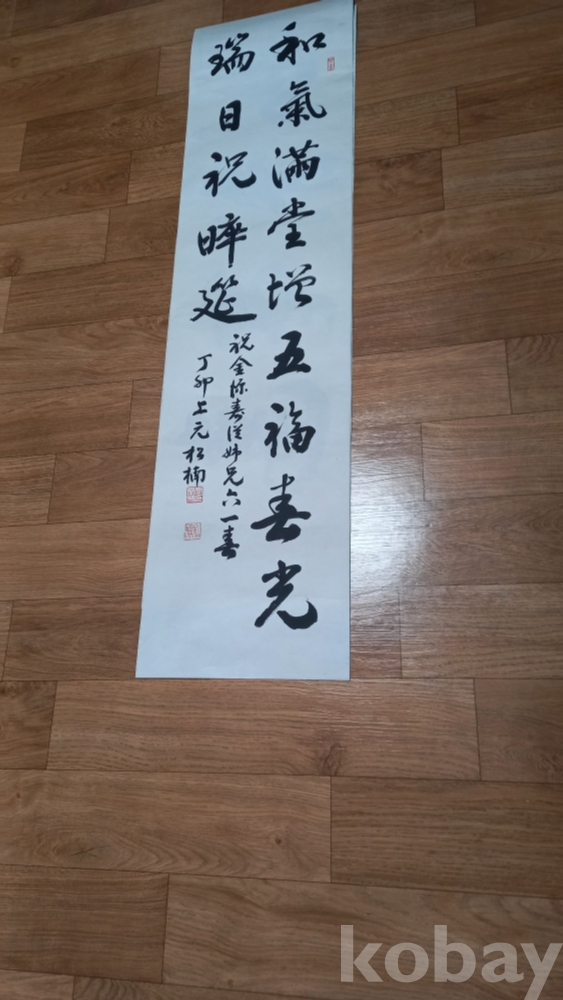 和氣滿堂增五福春光
瑞日祝晬筵
祝金 壽從姊兄六一壽
丁卯上元松楠
kobay